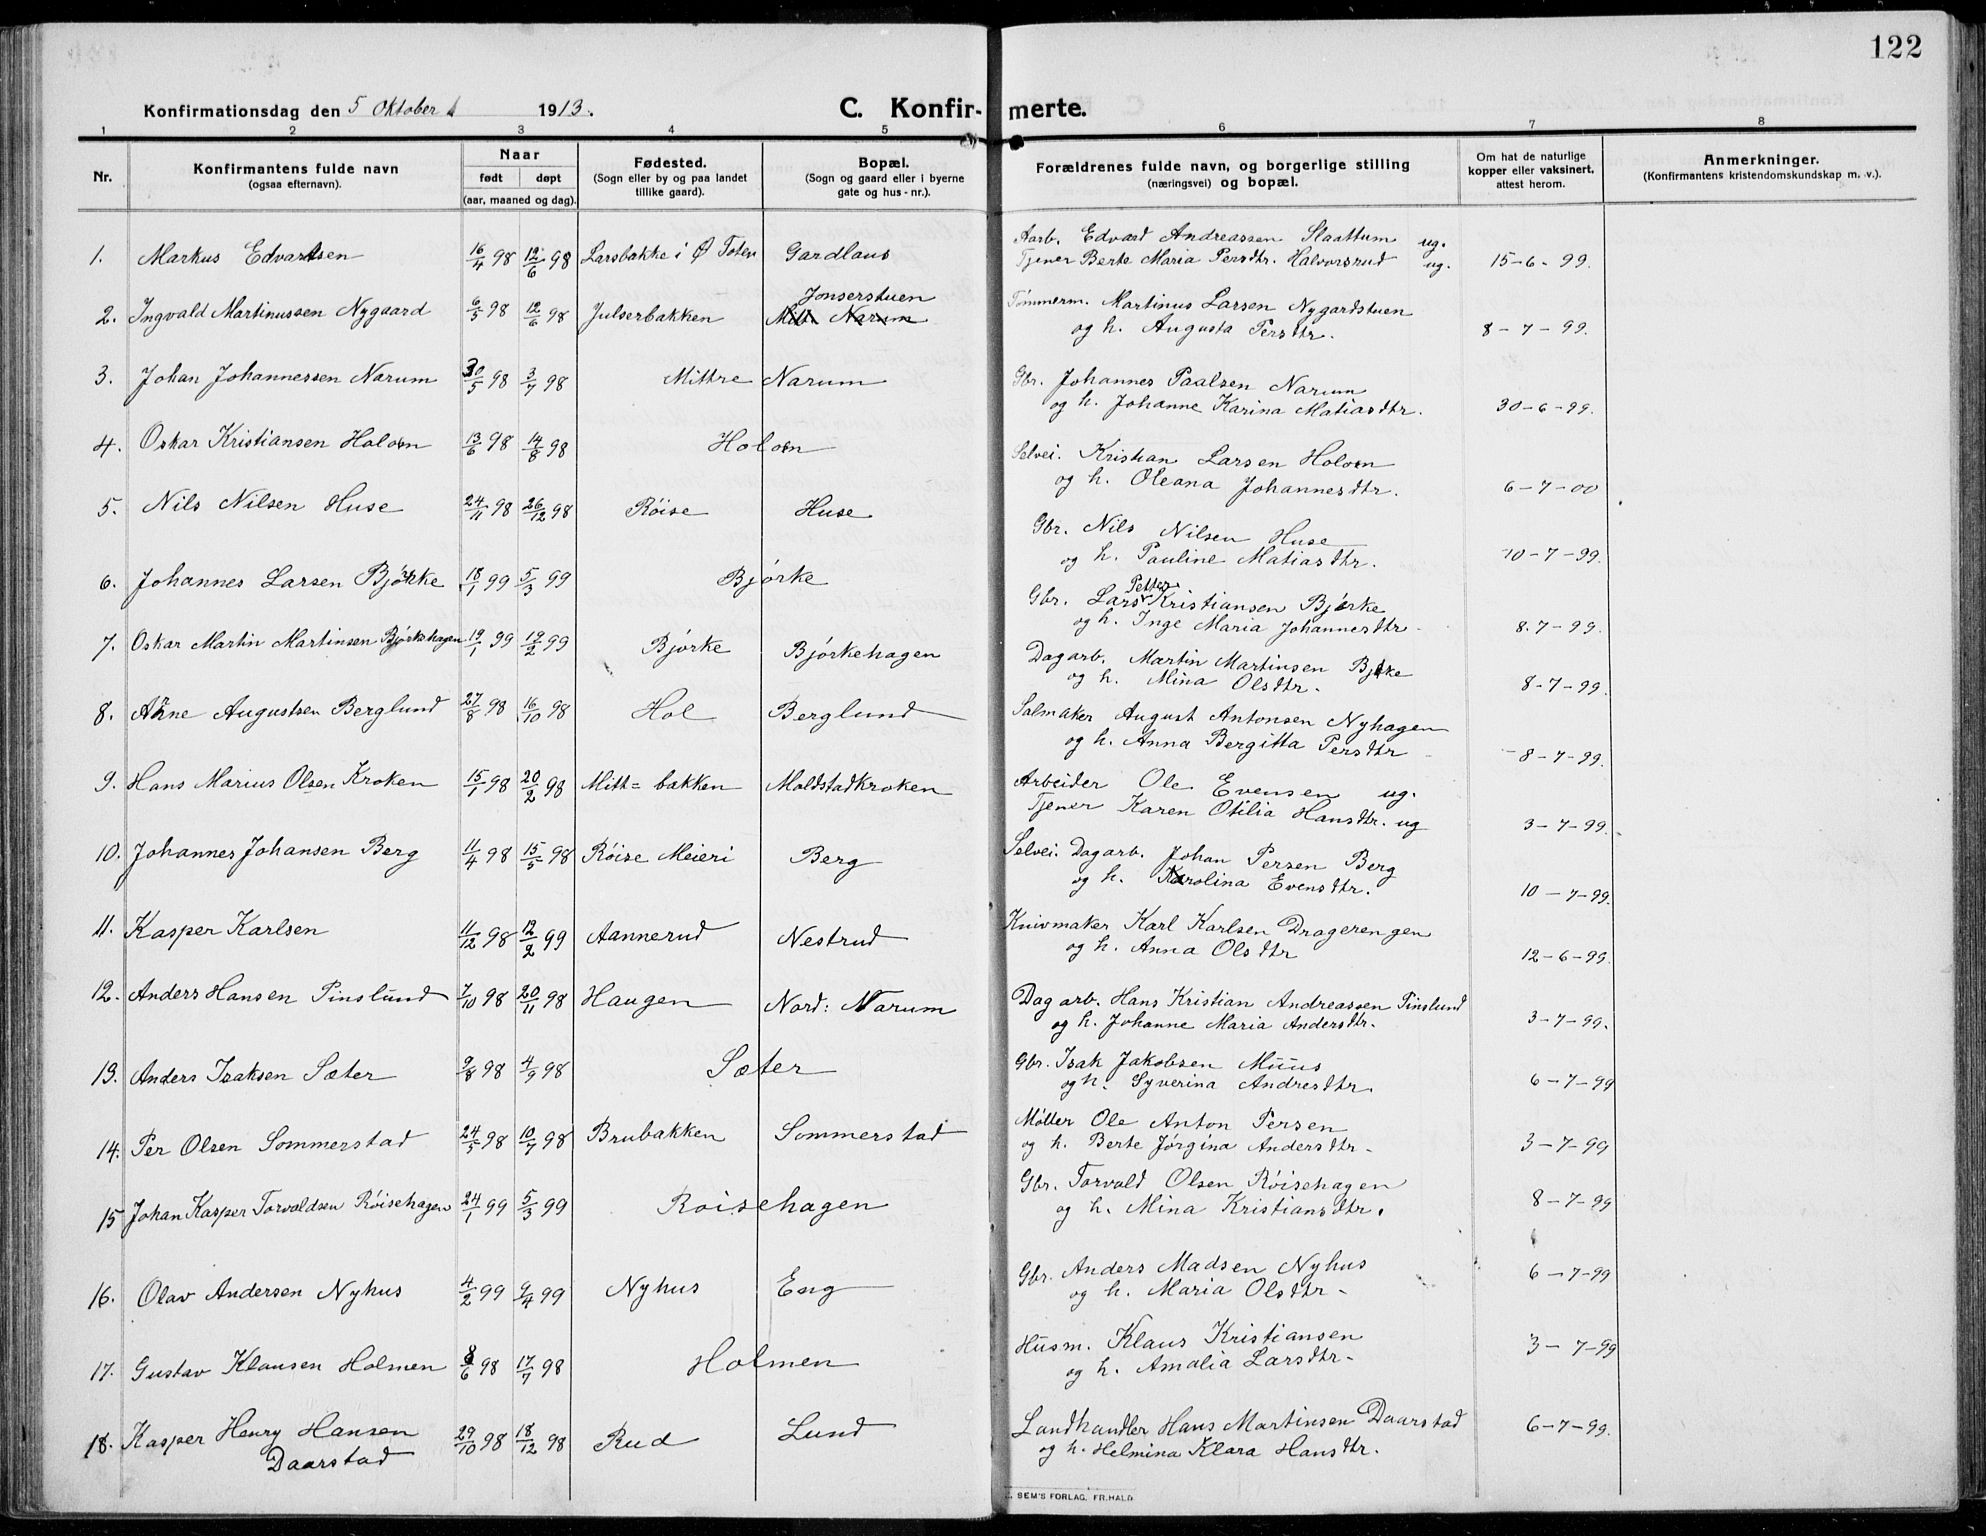 122
Konfirmationsdag den 5 Oktober 1913.
C. Konfirmerte.
1 2 3 4 5 6 7 8
Nr.
Konfirmantens fulde navn
(ogsaa efternavn).
Naar
født døpt
(aar, maaned og dag).
Fødested.
(Sogn eller by og paa landet
tillike gaard).
Bopæl.
(Sogn og gaard eller i byerne
gate og hus-nr.).
Forældrenes fulde navn, og borgerlige stilling
(næringsvei) og bopæl.
Om hat de naturlige
kopper eller vaksinert,
attest herom.
Anmerkninger.
(Konfirmantens kristendomskundskap m. v.).
1. Markus Edvartsen 16/4 98 12/6 98 Larsbakke i Ø Toten Gardlaus
Aarb. Edvard Andreassen Slaattum ug.
Tjener Berte Maria Persdtr. Halvorsrud ug. 15-6-99.
2. Ingvald Martinussen Nygaard 6/5 98 12/6 98 Julserbakken Jonserstuen
Mitt. Narum
Tømmerm. Martinus Larsen Nygardstuen
og h. Augusta Persdtr. 8-7-99.
3. Johan Johannessen Narum 30/5 98 3/7 98 Mittre Narum
Gbr. Johannes Paalsen Narum
og h. Johanne Karina Matiasdtr. 30-6-99.
4. Oskar Kristiansen Holoen 13/6 98 14/8 98 Holoen
Selvei. Kristian Larsen Holoen
og h. Oleana Johannesdtr. 6-7-00
5. Nils Nilsen Huse 24/11 98 26/12 98 Røise Huse
Gbr. Nils Nilsen Huse
og h. Pauline Matiasdtr. 10-7-99.
6. Johannes Larsen Bjørke 18/1 99 5/3 99 Bjørke
Petter
Gbr. Lars Kristiansen Bjørke
og h. Inge Maria Johannesdtr. 8.7-99.
7. Oskar Martin Martinsen Bjørkehagen 19/1 99 19/2 99 Bjørke Bjørkehagen
Dagarb. Martin Martinsen Bjørke
og h. Mina Olsdtr. 8-7-99.
8. Arne Augustsen Berglund 27/8 98 16/10 98 Hol Berglund
Salmaker August Antonsen Nyhagen
og h. Anna Bergitta Persdtr 8-7-99.
9. Hans Marius Olsen Kroken 15/1 98 20/2 98 Mitt=bakken Moldstadkroken
Arbeider Ole Evensen ug.
Tjener Karen Otilia Hansdtr. ug 3-7-99.
10. Johannes Johansen Berg 11/4 98 15/5 98 Røise Meieri Berg
Selvei. Dagarb. Johan Persen Berg
og h. Karolina Evensdtr. 10-7-99.
11. Kasper Karlsen 11/12 98 12/2 99 Aannerud Nestrud
Knivmaker Karl Karlsen Dragerengen
og h. Anna Olsdtr 12-6-99.
12. Anders Hansen Pinslund 7/10 98 20/11 98 Haugen Nord: Narum
Dagarb. Hans Kristian Andreassen Pinslund
og h. Johanne Maria Andersdtr. 3-7-99.
13. Anders Isaksen Sæter 9/8 98 4/9 98 Sæter
Gbr. Isak Jakobsen Muus
og h. Syverina Andresdtr. 6-7-99
14. Per Olsen Sommerstad 24/5 98 10/7 98 Brubakken Sommerstad
Møller Ole Anton Persen
og h. Berte Jørgina Andersdtr. 3-7-99
15 Johan Kasper Torvaldsen Røisehagen 24/1 99 5/3 99 Røisehagen
Gbr. Torvald Olsen Røisehagen
og h. Mina Kristiansdtr. 8-7-99
16. Olav Andersen Nyhus 4/2 99 9/4 99 Nyhus Eng
Gbr. Anders Madsen Nyhus
og h. Maria Olsdtr. 6-7-99
17. Gustav Klausen Holmen 8/6 98 17/7 98 Holmen
Husm. Klaus Kristiansen
og h. Amalia Larsdtr. 3-7-99
18. Kasper Henry Hansen
Daarstad 29/10 98 18/12 98 Rud Lund
Landhandler Hans Martinsen Daarstad
og h. Helmina Klara Hansdtr. 6-7-99.
SEM'S FORLAG. FR.HALD